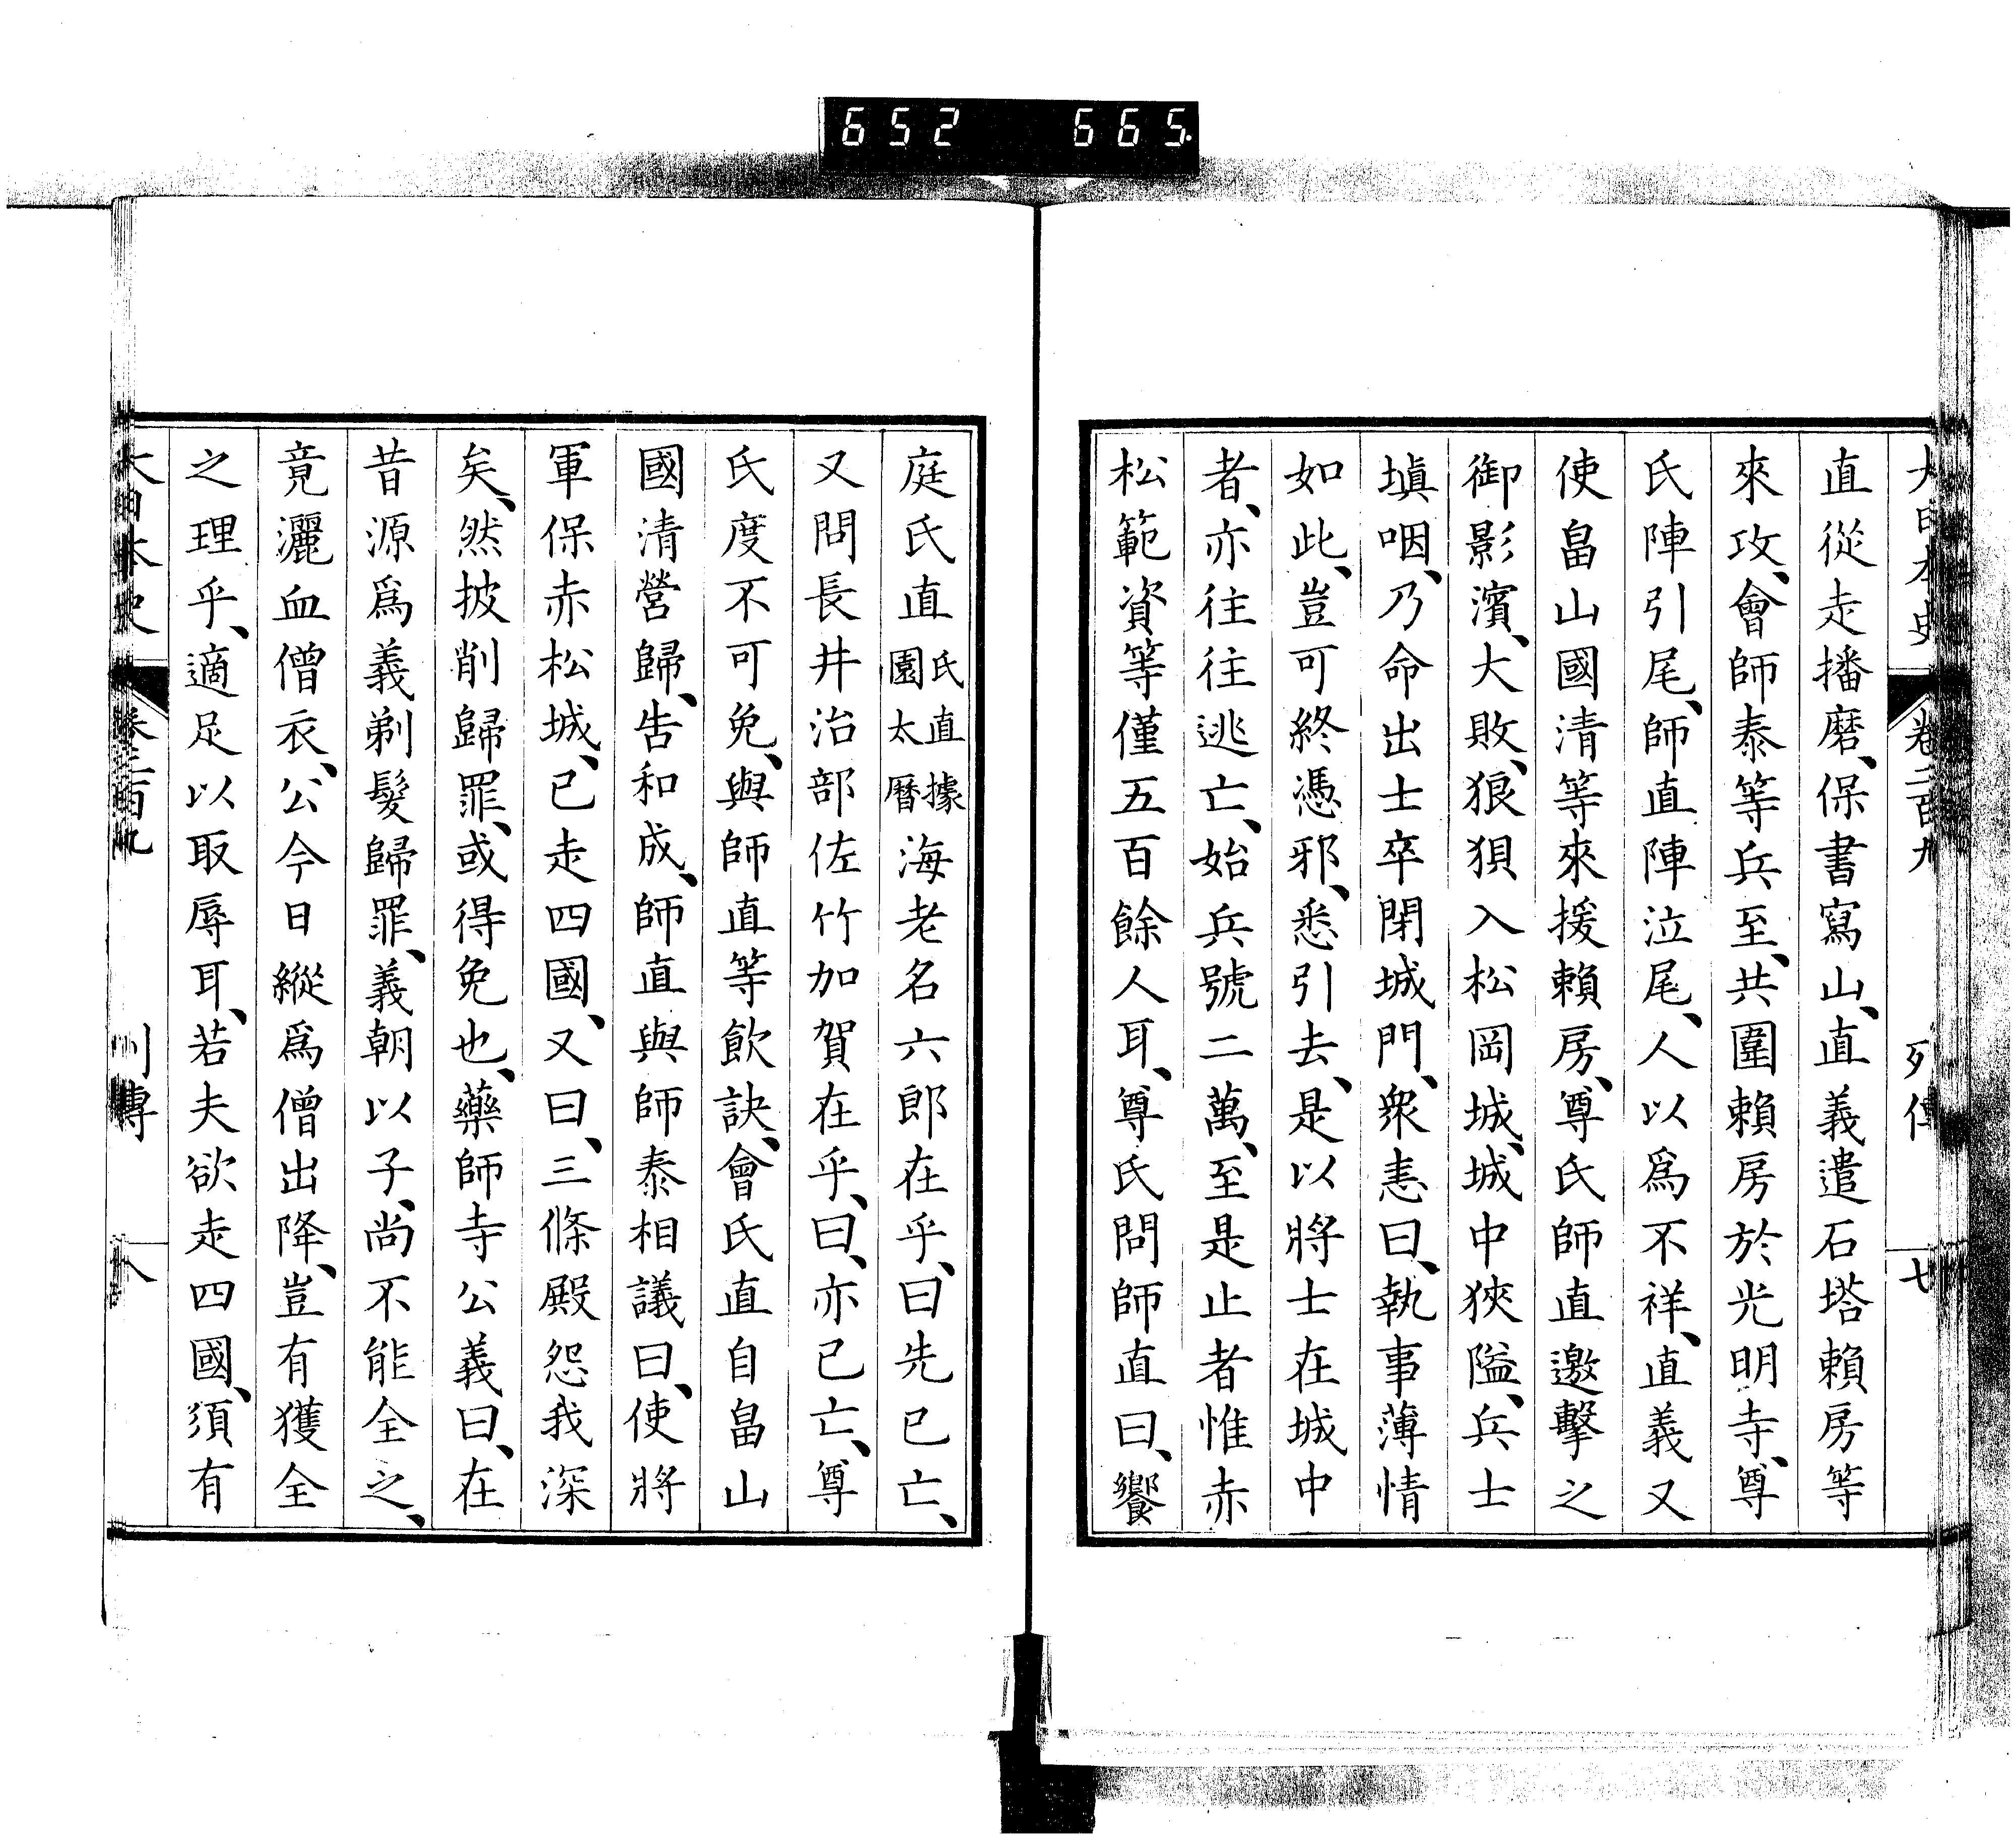 652 665
大日本史 卷二百九 列傳 七
直從走播磨、保書寫山、直義遣石塔賴房等
來攻、會師泰等兵至、共圍賴房於光明寺、尊
氏陣引尾、師直陣泣尾、人以爲不祥、直義又
使畠山國清等來援賴房、尊氏師直邀擊之
御影濱、大敗、狼狽入松岡城、城中狹隘、兵士
塡咽、乃命出士卒閉城門、衆恚曰、執事薄情
如此、豈可終憑邪、悉引去、是以將士在城中
者、亦往往逃亡、始兵號二萬、至是止者惟赤
松範資等僅五百餘人耳、尊氏問師直曰、饗
庭氏直氏直據園太曆海老名六郎在乎、曰先已亡、
又問長井治部佐竹加賀在乎、曰、亦已亡、尊
氏度不可免、與師直等飮訣、會氏直自畠山
國清營歸、告和成、師直與師泰相議曰、使將
軍保赤松城、已走四國、又曰、三條殿怨我深
矣、然披削歸罪、或得免也、藥師寺公義曰、在
昔源爲義剃髮歸罪、義朝以子、尚不能全之、
竟灑血僧衣、公今日縱爲僧出降、豈有獲全
之理乎、適足以取辱耳、若夫欲走四國、須有
大日本史 卷二百九 列傳 八